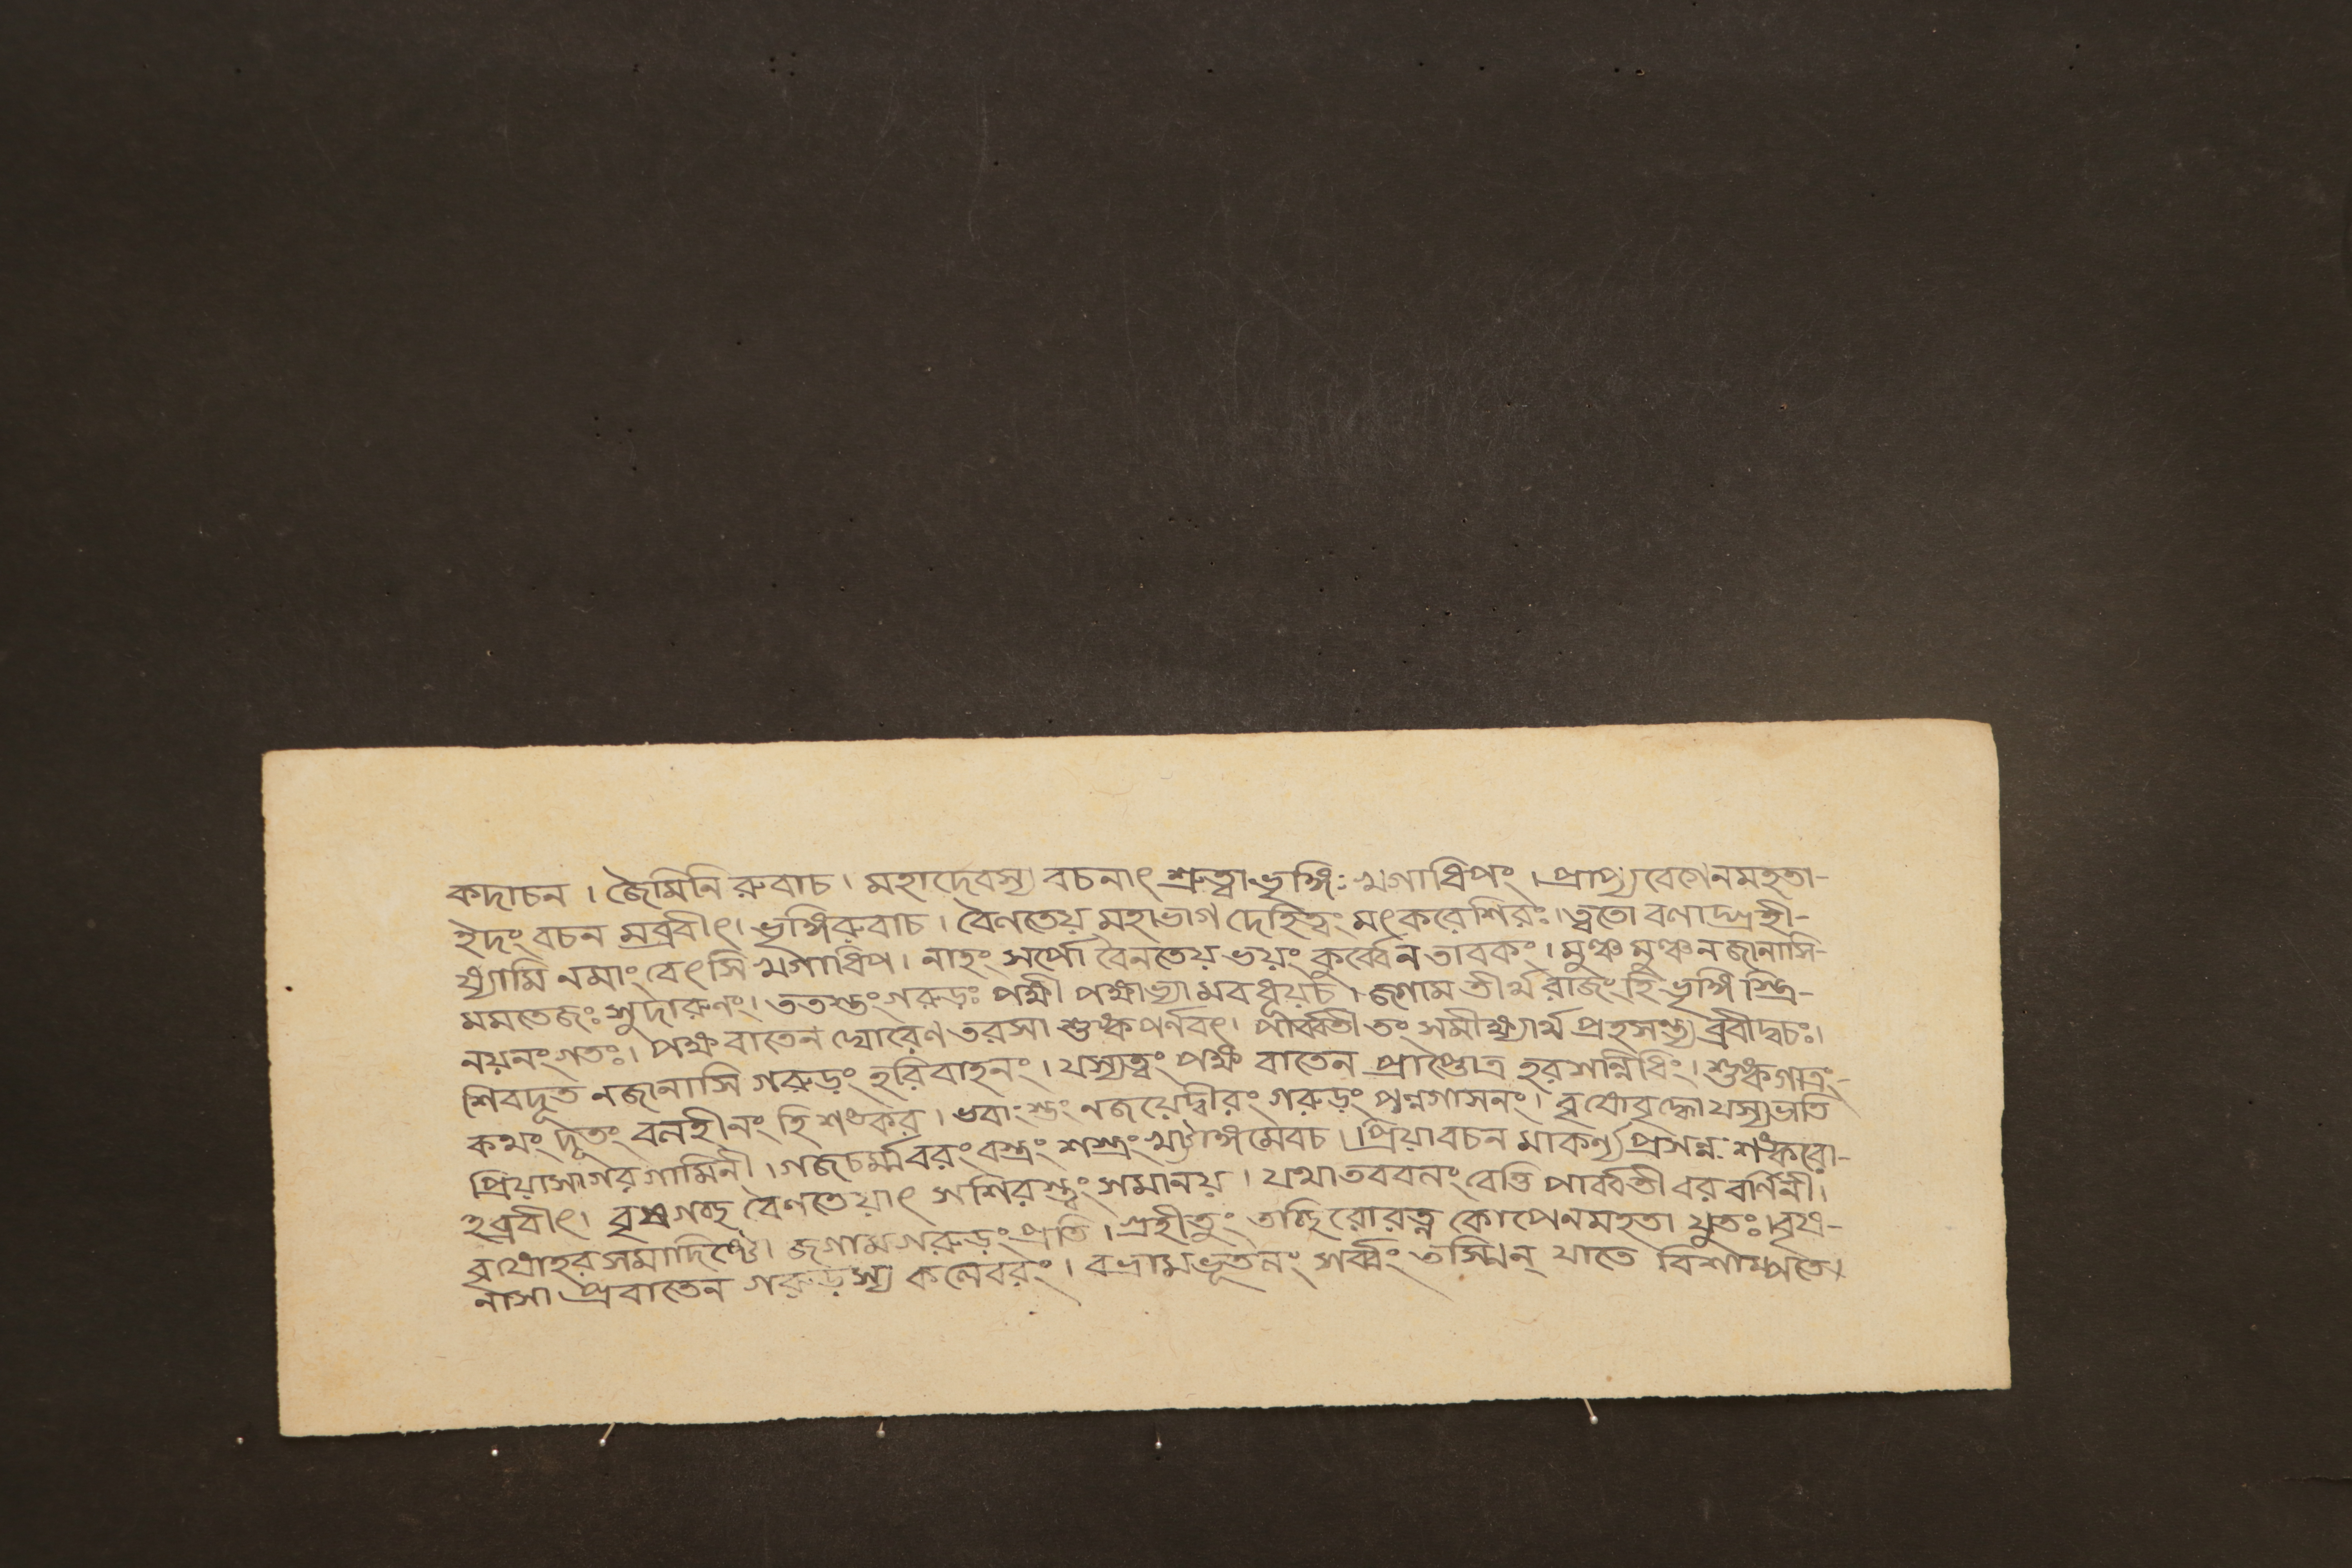 কদাচন । জৈমিনি রুবাচ । মহাদেবস্য বচনাৎ শ্রুত্বা ভৃঙ্গিঃ খগাধিপং । প্রাপ্য বেগেনমহতা-
ইদং বচন মব্রবীৎ। ভৃঙ্গিরুবাচ । বৈণতেয় মহাভাগ দেহিত্বং মৎকরেশিরঃ। ত্বতো বণাদ্গ্রহী-
ষ্যামি নমাং বেৎসি খগাধিপ । নাহং সর্পো বৈনতেয় ভয়ং কুর্ব্বেন তাবকং । মুঞ্চ মুঞ্চ নজানাসি-
মমতেজঃ সুদারুনং। ততস্তং গরুড়ঃ পক্ষী পক্ষাভ্যামবধূয়চ । জগাম তীর্থরাজং হি ভৃঙ্গি স্ত্রি-
নয়নং গতঃ। পক্ষ বাতেন ঘোরেণ তরসা শুষ্ক পর্নবৎ। পার্ব্বতী তং সমীক্ষ্যার্থ প্রহসন্ত্য ব্রবীদ্বচঃ।
শিবদূত নজানাসি গরুড়ং হরিবাহনং । যস্যত্বং পক্ষ বাতেন প্রাপ্তোত্র হরসন্নিধিং। শুষ্কগাত্রং-
কথং দূতং বলহীনং হি শঙ্কর । ভবাংস্তং নজয়েদ্বীরং গরুড়ং পন্নগাসনং। বৃষোবৃদ্ধো যস্যভাতি
প্রিয়াসাগর গামিনী । গজচর্ম্মবরং বস্ত্রং শস্ত্রং খট্টাঙ্গমেবচ । প্রিয়াবচন মাকর্ণ্য প্রসন্ন শঙ্করো-
হব্রবীৎ। বৃষগচ্ছ বৈণতেয়াৎ সশিরস্ত্বং সমানয় । যথা তববলং বেত্তি পার্ব্বতী বর বর্ণিনী।
বৃষোহর সমাদিষ্টো জগাম গরুড়ং প্রতি । গ্রহীতুং তচ্ছিরোরত্ন কোপেনমহতা যুতঃ। বৃষ-
নাসা প্রবাতেন গরুড়স্য কলেবরং । বভ্রাম ভূতলং সর্ব্বং তস্মিন্ যাতে বিশাম্পতে।